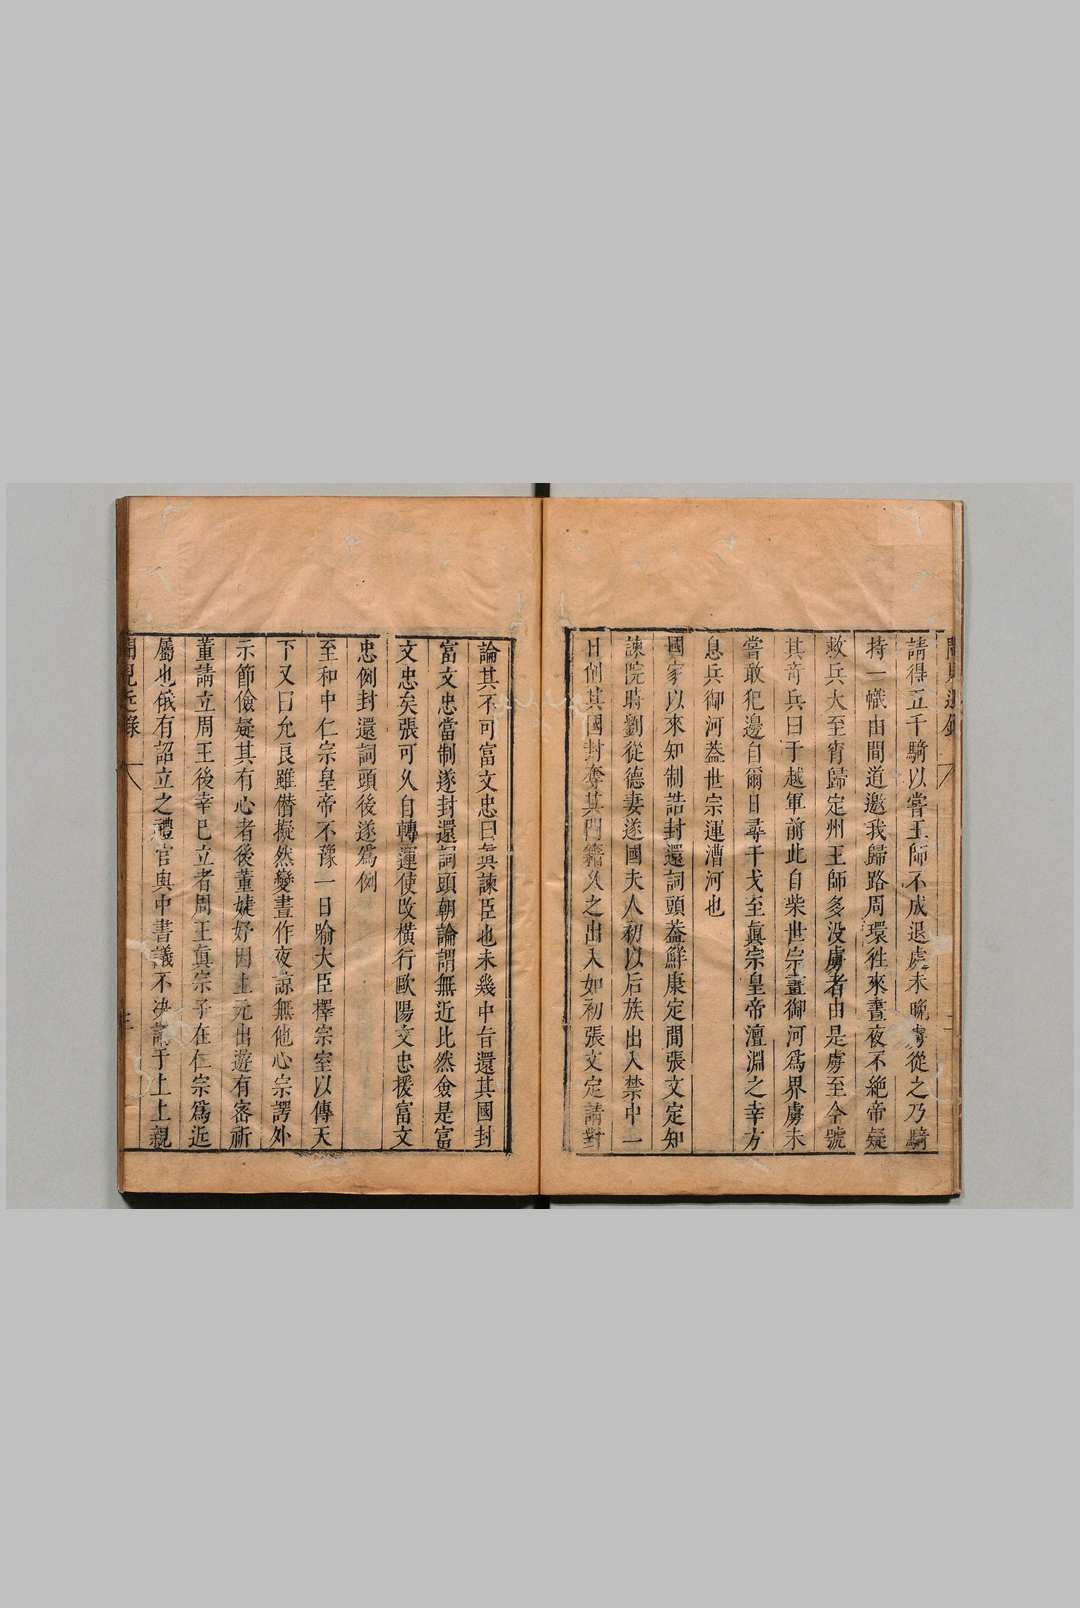 聞見近錄
請得五千騎以嘗王師不成退處未晩虜從之乃騎
持一幟由間道邀我歸路周環徃來晝夜不絶帝疑
救兵大至宵歸定州王師多没虜者由是虜至今號
其竒兵曰于越軍前此自柴世宗畫御河爲界虜未
嘗敢犯邊自爾日尋干戈至眞宗皇帝澶淵之幸方
息兵御河葢世宗運漕河也
國家以來知制誥封還詞頭葢鮮康定間張文定知
諫院時劉從德妻遂國夫人初以后族出入禁中一
日削其國封奪其門籍久之出入如初張文定請對
論其不可富文忠曰眞諫臣也未幾中旨還其國封
富文忠當制遂封還詞頭朝論謂無近比然僉是富
文忠矣張可久自轉運使改橫行歐陽文忠援富文
忠例封還詞頭後遂爲例
至和中仁宗皇帝不豫一日喻大臣擇宗室以傳天
下又曰允良雖僭擬然變晝作夜諒無他心宗諤外
示節儉疑其有心者後董婕妤因上元出遊有密祈
董請立周王後幸已立者周王眞宗子在仁宗爲近
屬也俄有詔立之禮官與中書議不決議于上上親
聞見近錄
三